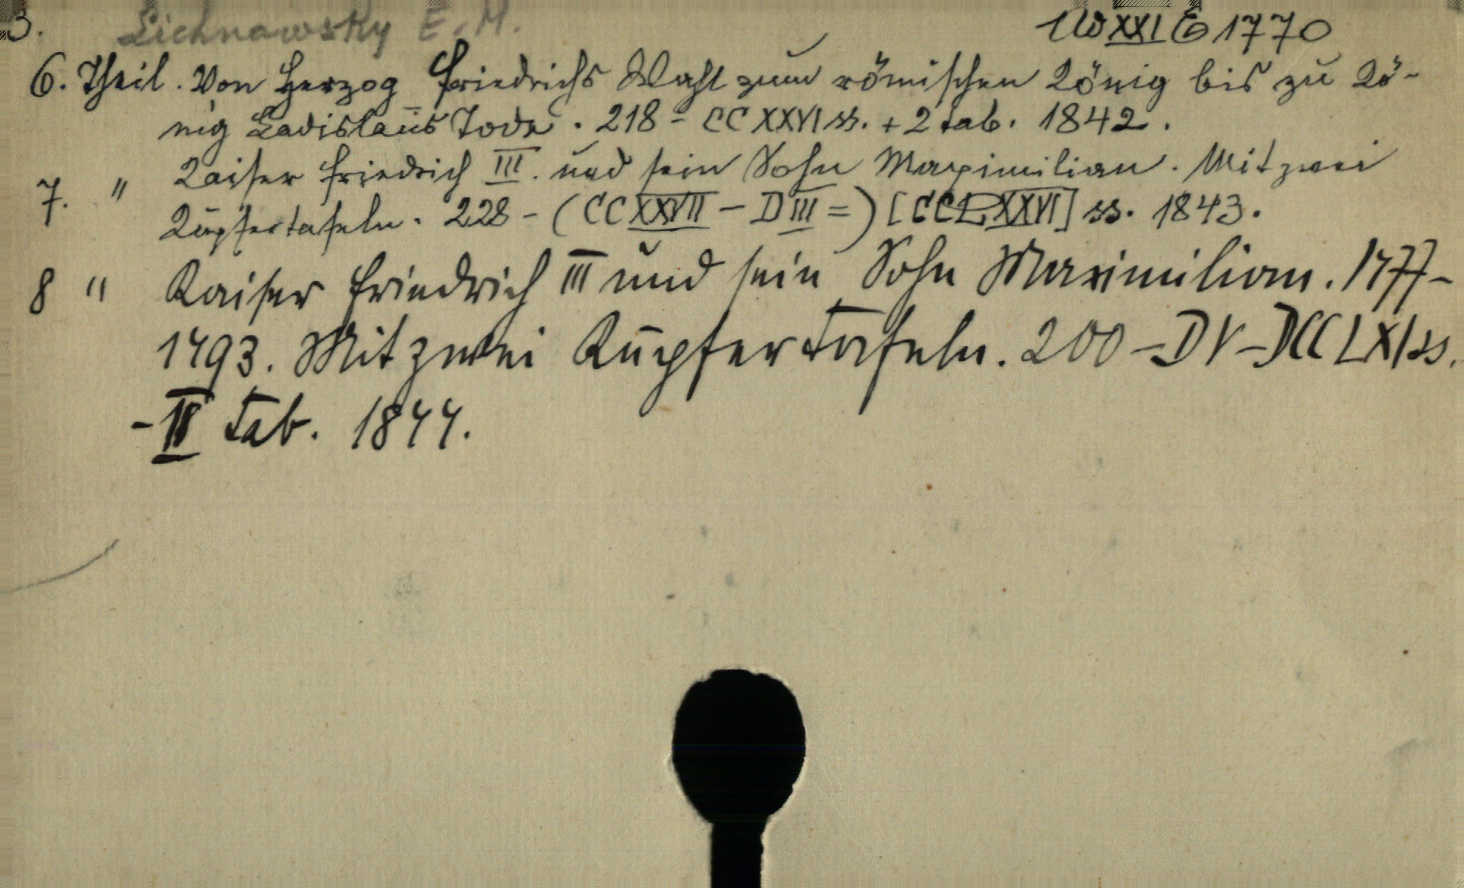 3. Lichnowsky E. M. UW XXI E 1770
6. Theil. Von Herzog Friedrichs Wahl zum römischen König bis zu Kö-
nig Ladislaūs Tode. 218 - CCXXVI ss. + 2 tab. 1842.
7. " Kaiser Friedrich III. und sein Sohn Maximilian. Mit zwei
Kupfertafeln. 228 - (CCXXVII - DIII =) [CCLXXVI] ss. 1843.
8 " Kaiser Friedrich III und sein Sohn Maximilian. 1477-
1493. Mit zwei Kupfertafeln. 200 - DV - DCCLXI ss.
- II Tab. 1844.